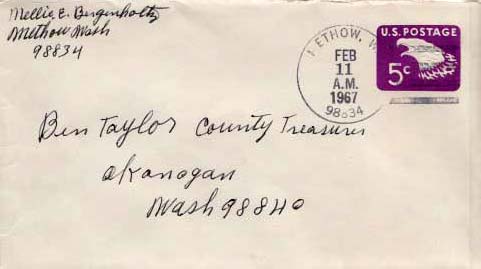 Mellie E. Bergenholtz
Methow Wash
98834
METHOW, W
FEB
11
A.M.
1967
98834
U.S. POSTAGE
5c
Ben Taylor County Treasurer
Okanogan
Wash 98840